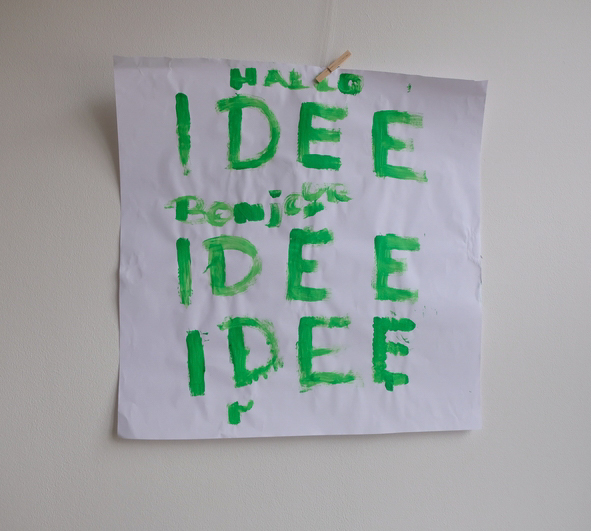 HALLO
IDEE
Bonjour
IDEE
IDEE
r